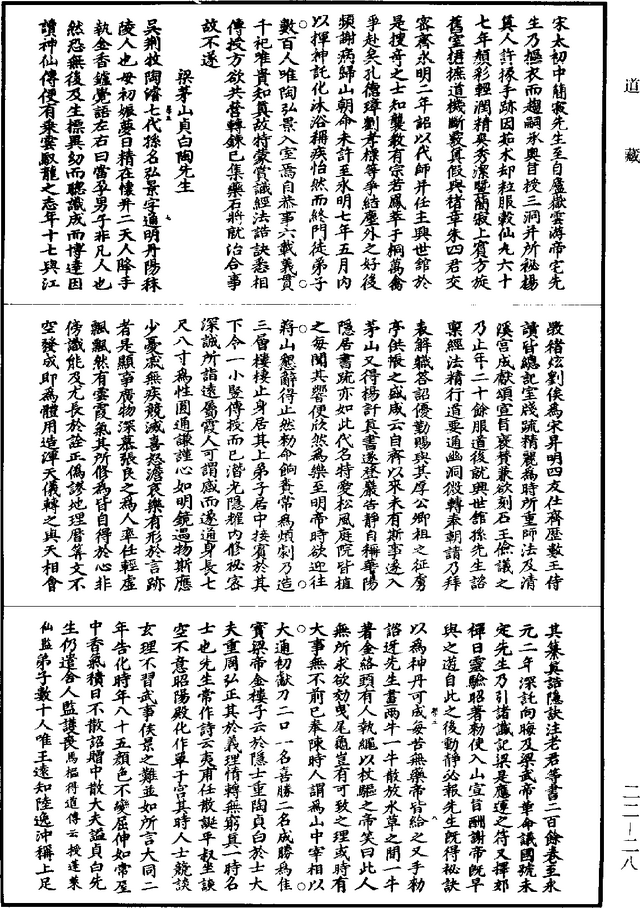 道藏
宋太初中簡寂先生至自廬嶽雲游帝宅先
生乃摳衣而趨嗣承奧旨授三洞并所祕楊
真人許掾手跡因茹朮却粒服榖仙丸六十
七年顏彩輕潤精爽秀潔暨簡寂上賓方旋
舊室捃摭道機斷覈真假與褚章朱四君交
密齊永明二年詔以代師并任主興世館於
是搜奇之士知襲教有宗若鳳萃于桐萬禽
爭赴矣孔德璋劉孝標等爭結塵外之好後
頻謝病歸山朝命未許至永明七年五月內
以揮神託化沐浴稱疾怡然而終門徒弟子
數百人唯陶弘景入室焉自恭事六載義貫
千祀唯貴知真故特蒙賞識經法誥訣悉相
傳授方欲共營轉鍊已集藥石將就治合事
故不遂
梁茅山貞白陶先生
吳荆牧陶濬七代孫名弘景字通明丹陽秣
陵人也母初娠夢日精在懷并二天人降手
執金香鑪覺語左右曰當孕男子非凡人也
然恐無後及生標異幼而聰識成而博達因
讀神仙傳便有乘雲馭龍之志年十七與江
斆褚炫劉俣為宋昇明四友仕齊歷數王侍
讀皆總記室牋疏精麗為時所重師法及清
溪宮成獻頌宣旨褒贊兼欲刻石王儉議之
乃止年二十餘服道後就興世館孫先生諮
稟經法精行道要通幽洞微轉奉朝請乃拜
表解職答詔優勤賜與其厚公卿祖之征虜
亭供帳之盛咸云自齊以來未有斯事遂入
茅山又得楊許真書遂登巖告靜自稱華陽
隱居書疏亦如此代名特愛松風庭院皆植
之每聞其響便欣然為樂至明帝時欲迎往
蔣山懇辭得止然勑命餉賚常為煩劇乃造
三層樓棲止身居其上弟子居中接賓於其
下令一小豎傳授而已潛光隱耀內修秘密
深誠所詣遠屬霞人可謂感而遂通身長七
尺八寸為性圓通謙謹心如明鏡遇物斯應
少憂戚無疾競滅喜怒澹哀樂有形於言跡
者是顯事廣物深慕張良之為人率任輕虛
飄飄然有雲霞氣其所修為皆自得於心非
傍識能及尤長於詮正偽謬地理曆筭文不
空發成即為體用造渾天儀轉之與天相會
其纂真誥隱訣注老君等書二百餘卷至永
元二年深託向晦及梁武帝革命議國號未
定先生乃引諸讖記梁是應運之符又擇郊
禪日靈驗昭著勑使入山宣旨酬謝帝既早
與之遊自此之後動靜必報先生既得秘訣
以為神丹可成每苦無藥帝皆給之又手勑
詔迓先生畫兩牛一牛散放水草之間一牛
著金絡頭有人執繩以杖驅之帝笑曰此人
無所求欲効曳尾龜豈有可致之理或時有
大事無不前已奉陳時人謂為山中宰相以
大通初獻刀二口一名喜勝二名成勝為佳
寶梁帝金樓子云於隱士重陶貞白於士大
夫重周弘正其於義理情轉無窮真一時名
士也先生常作詩云夷甫任散誕平叔坐談
空不意昭陽殿化作單于宮其時人士競談
玄理不習武事侯景之難並如所言大同二
年告化時年八十五顏色不變屈伸如常屋
中香氣積日不散詔贈中散大夫謚貞白先
生仍遣舍人監護喪馬樞得道傳云授蓬萊
仙監弟子數十人唯王遠知陸逸沖稱上足
二二—二八